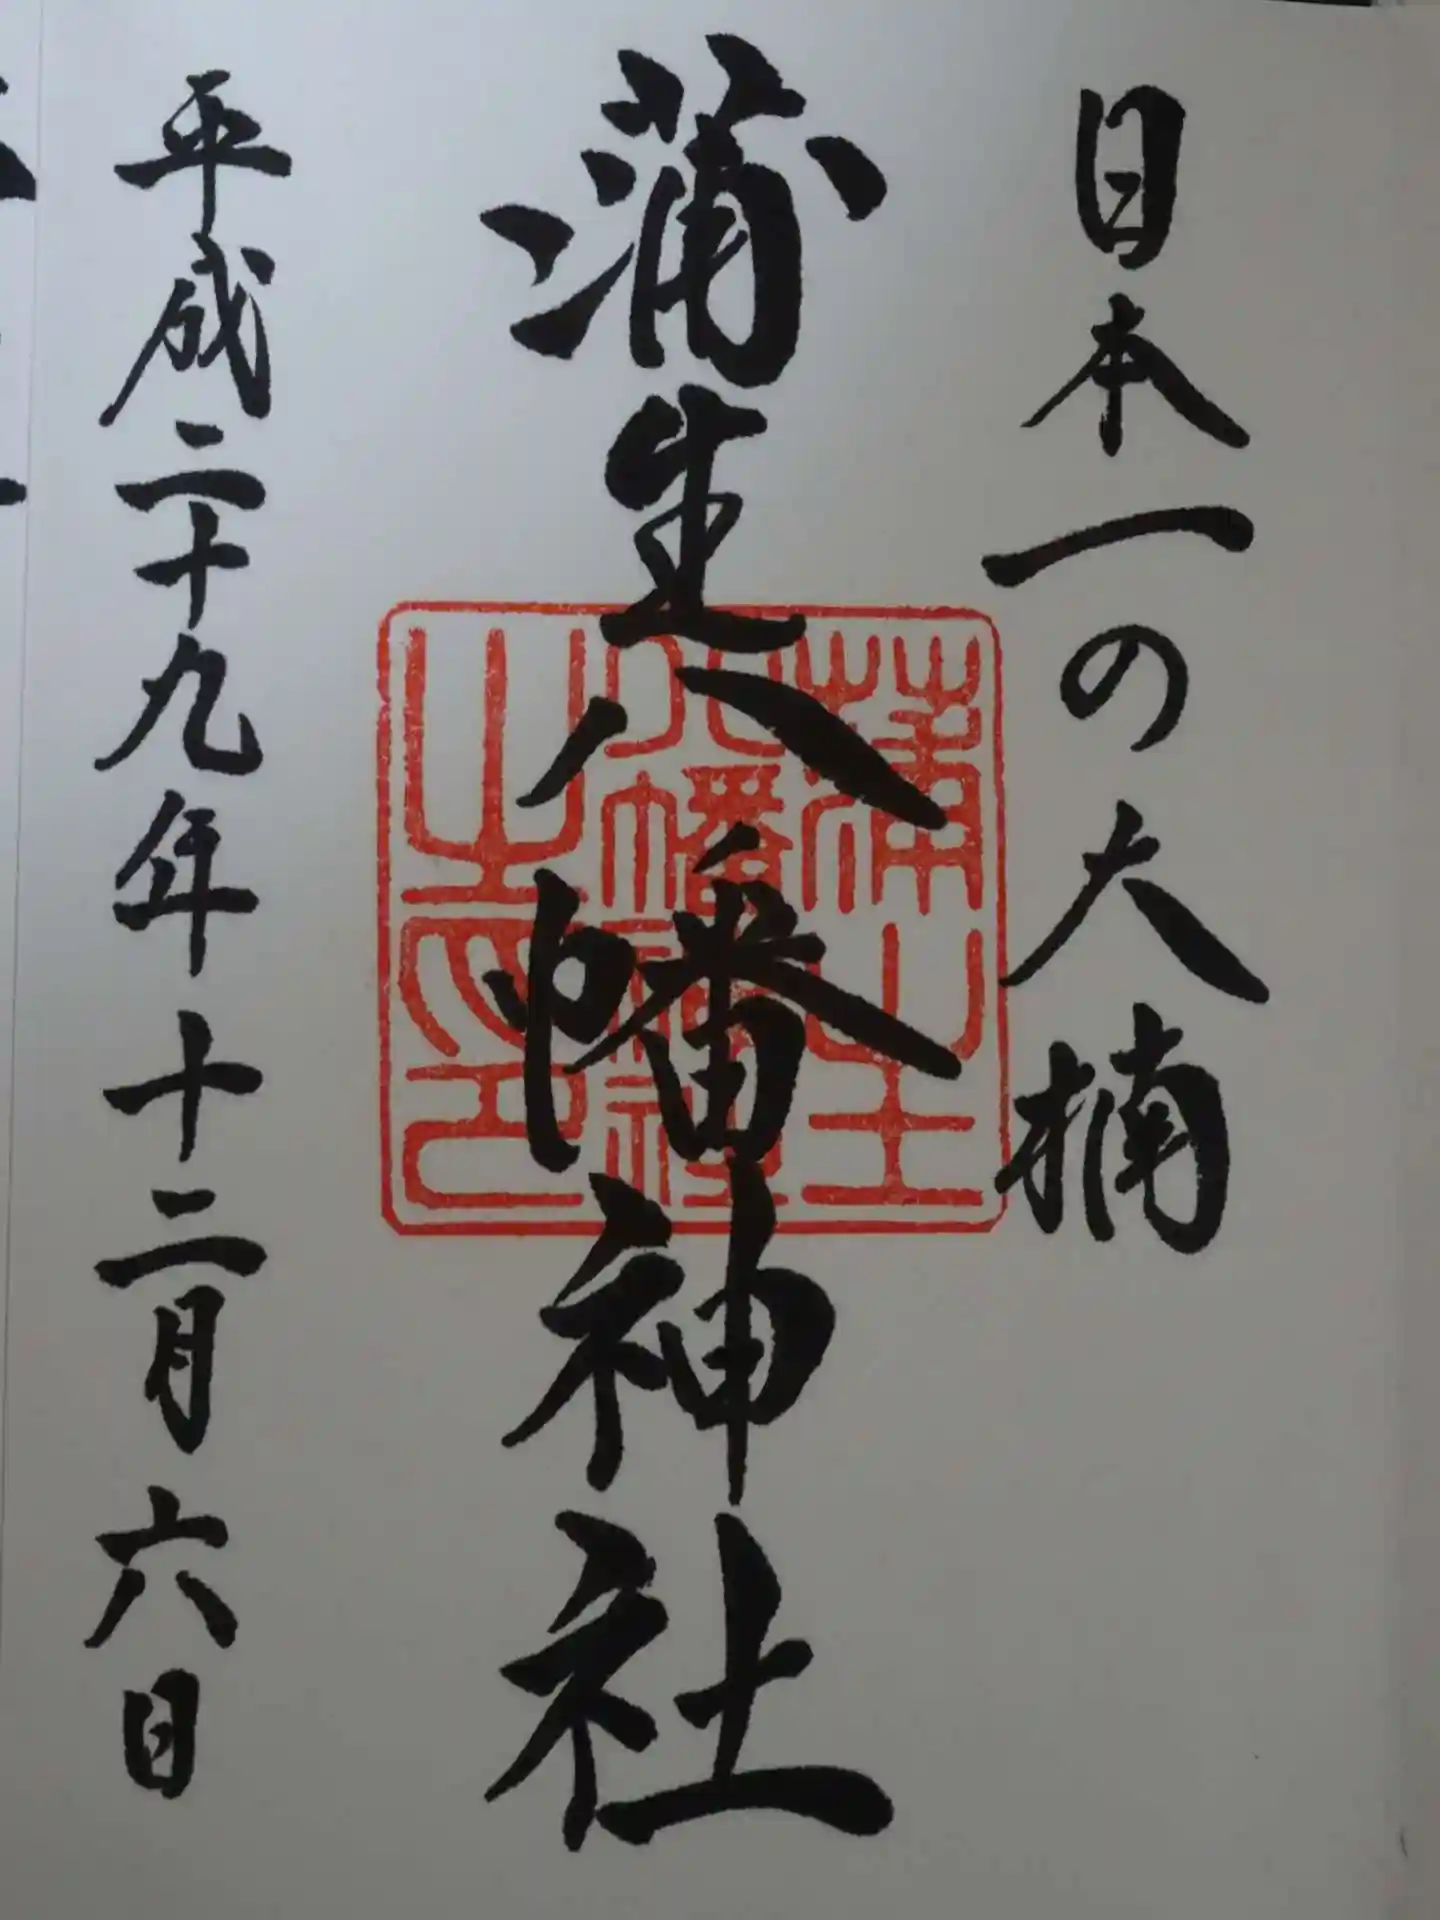 日本一の大楠
蒲生八幡神社
平成二十九年十二月六日
蒲生
八幡神社
之印